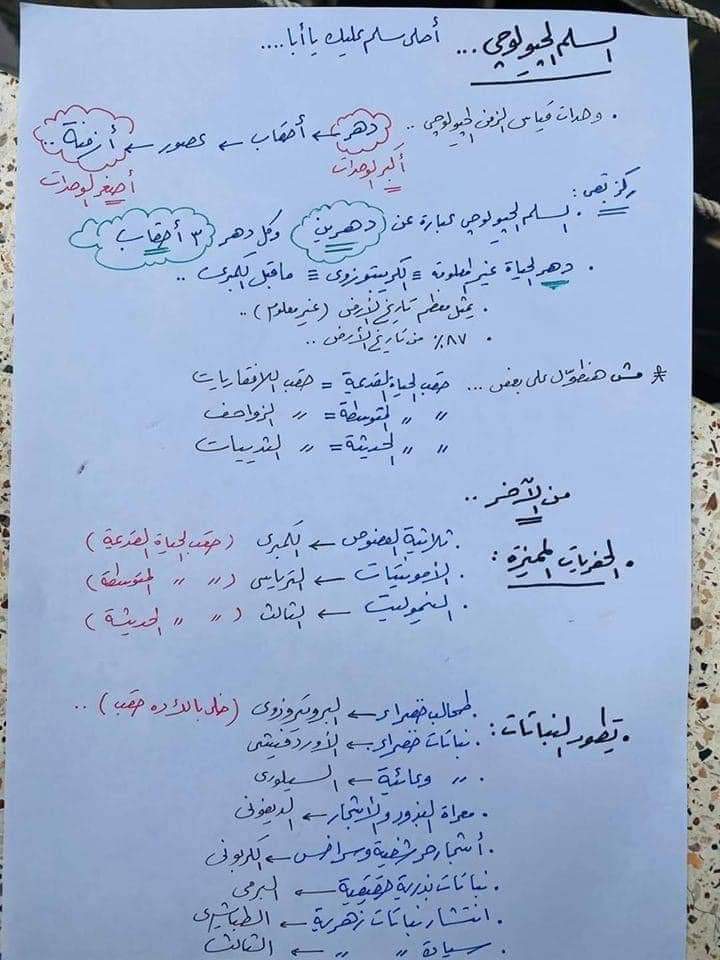 السلم الجيولوجي ... أصلى سلم عليك يا أبا ....
• وحدات قياس الزمن الجيولوجي .. دهر ← أحقاب ← عصور ← أزمنة ..
أكبر الوحدات
أصغر الوحدات
ركز بقى :
• السلم الجيولوجي عبارة عن دهرين وكل دهر ٣ أحقاب
• دهر الحياة غير المعلومة ≡ الكريبتوزوى ≡ ماقبل الكمبرى ..
• يمثل معظم تاريخ الأرض (غير معلوم) ..
• ٨٧٪ من تاريخ الأرض ..
* مش هنطوّل على بعض ... حقب الحياة القديمة = حقب اللافقاريات
〃 〃 المتوسطة = 〃 الزواحف
〃 〃 الحديثة = 〃 الثدييات
من الآخر ..
• الحفريات المميزة :
• ثلاثية الفصوص ← الكمبرى (حقب الحياة القديمة)
• الأمونيتات ← الترياسى (〃 〃 المتوسطة)
• النيموليت ← الثالث (〃 〃 الحديثة)
• تطور النباتات :
• طحالب خضراء ← البروتيروزوى (خلى بالك ده حقب) ..
• نباتات خضراء ← الأوردفيشى
• 〃 وعائية ← السيلورى
• معراة البذور والأشجار ← الديفونى
• أشجار حرشفية وسراخس ← الكربونى
• نباتات بذرية حقيقية ← البرمى
• انتشار نباتات زهرية ← الطباشيرى
• سيادة 〃 〃 ← الثالث